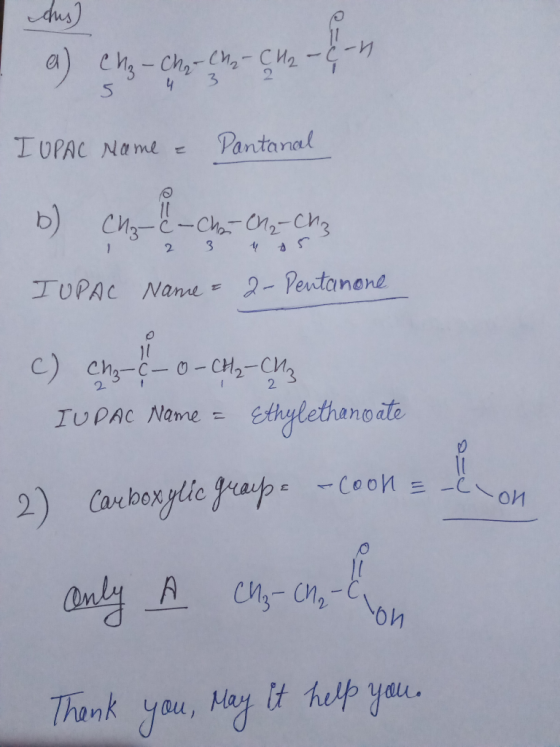 Ans)
O
a) CH3 – CH2 – CH2 – CH2 – C – H
5 4 3 2 1
IUPAC Name = Pantanal
O
b) CH3 – C – CH2 – CH2 – CH3
1 2 3 4 5
IUPAC Name = 2 - Pentanone
O
c) CH3 – C – O – CH2 – CH3
2 1 1 2
IUPAC Name = Ethylethanoate
O
2) Carboxylic group = – COOH ≡ – C
OH
O
only A CH3 – CH2 – C
OH
Thank you, May it help you.